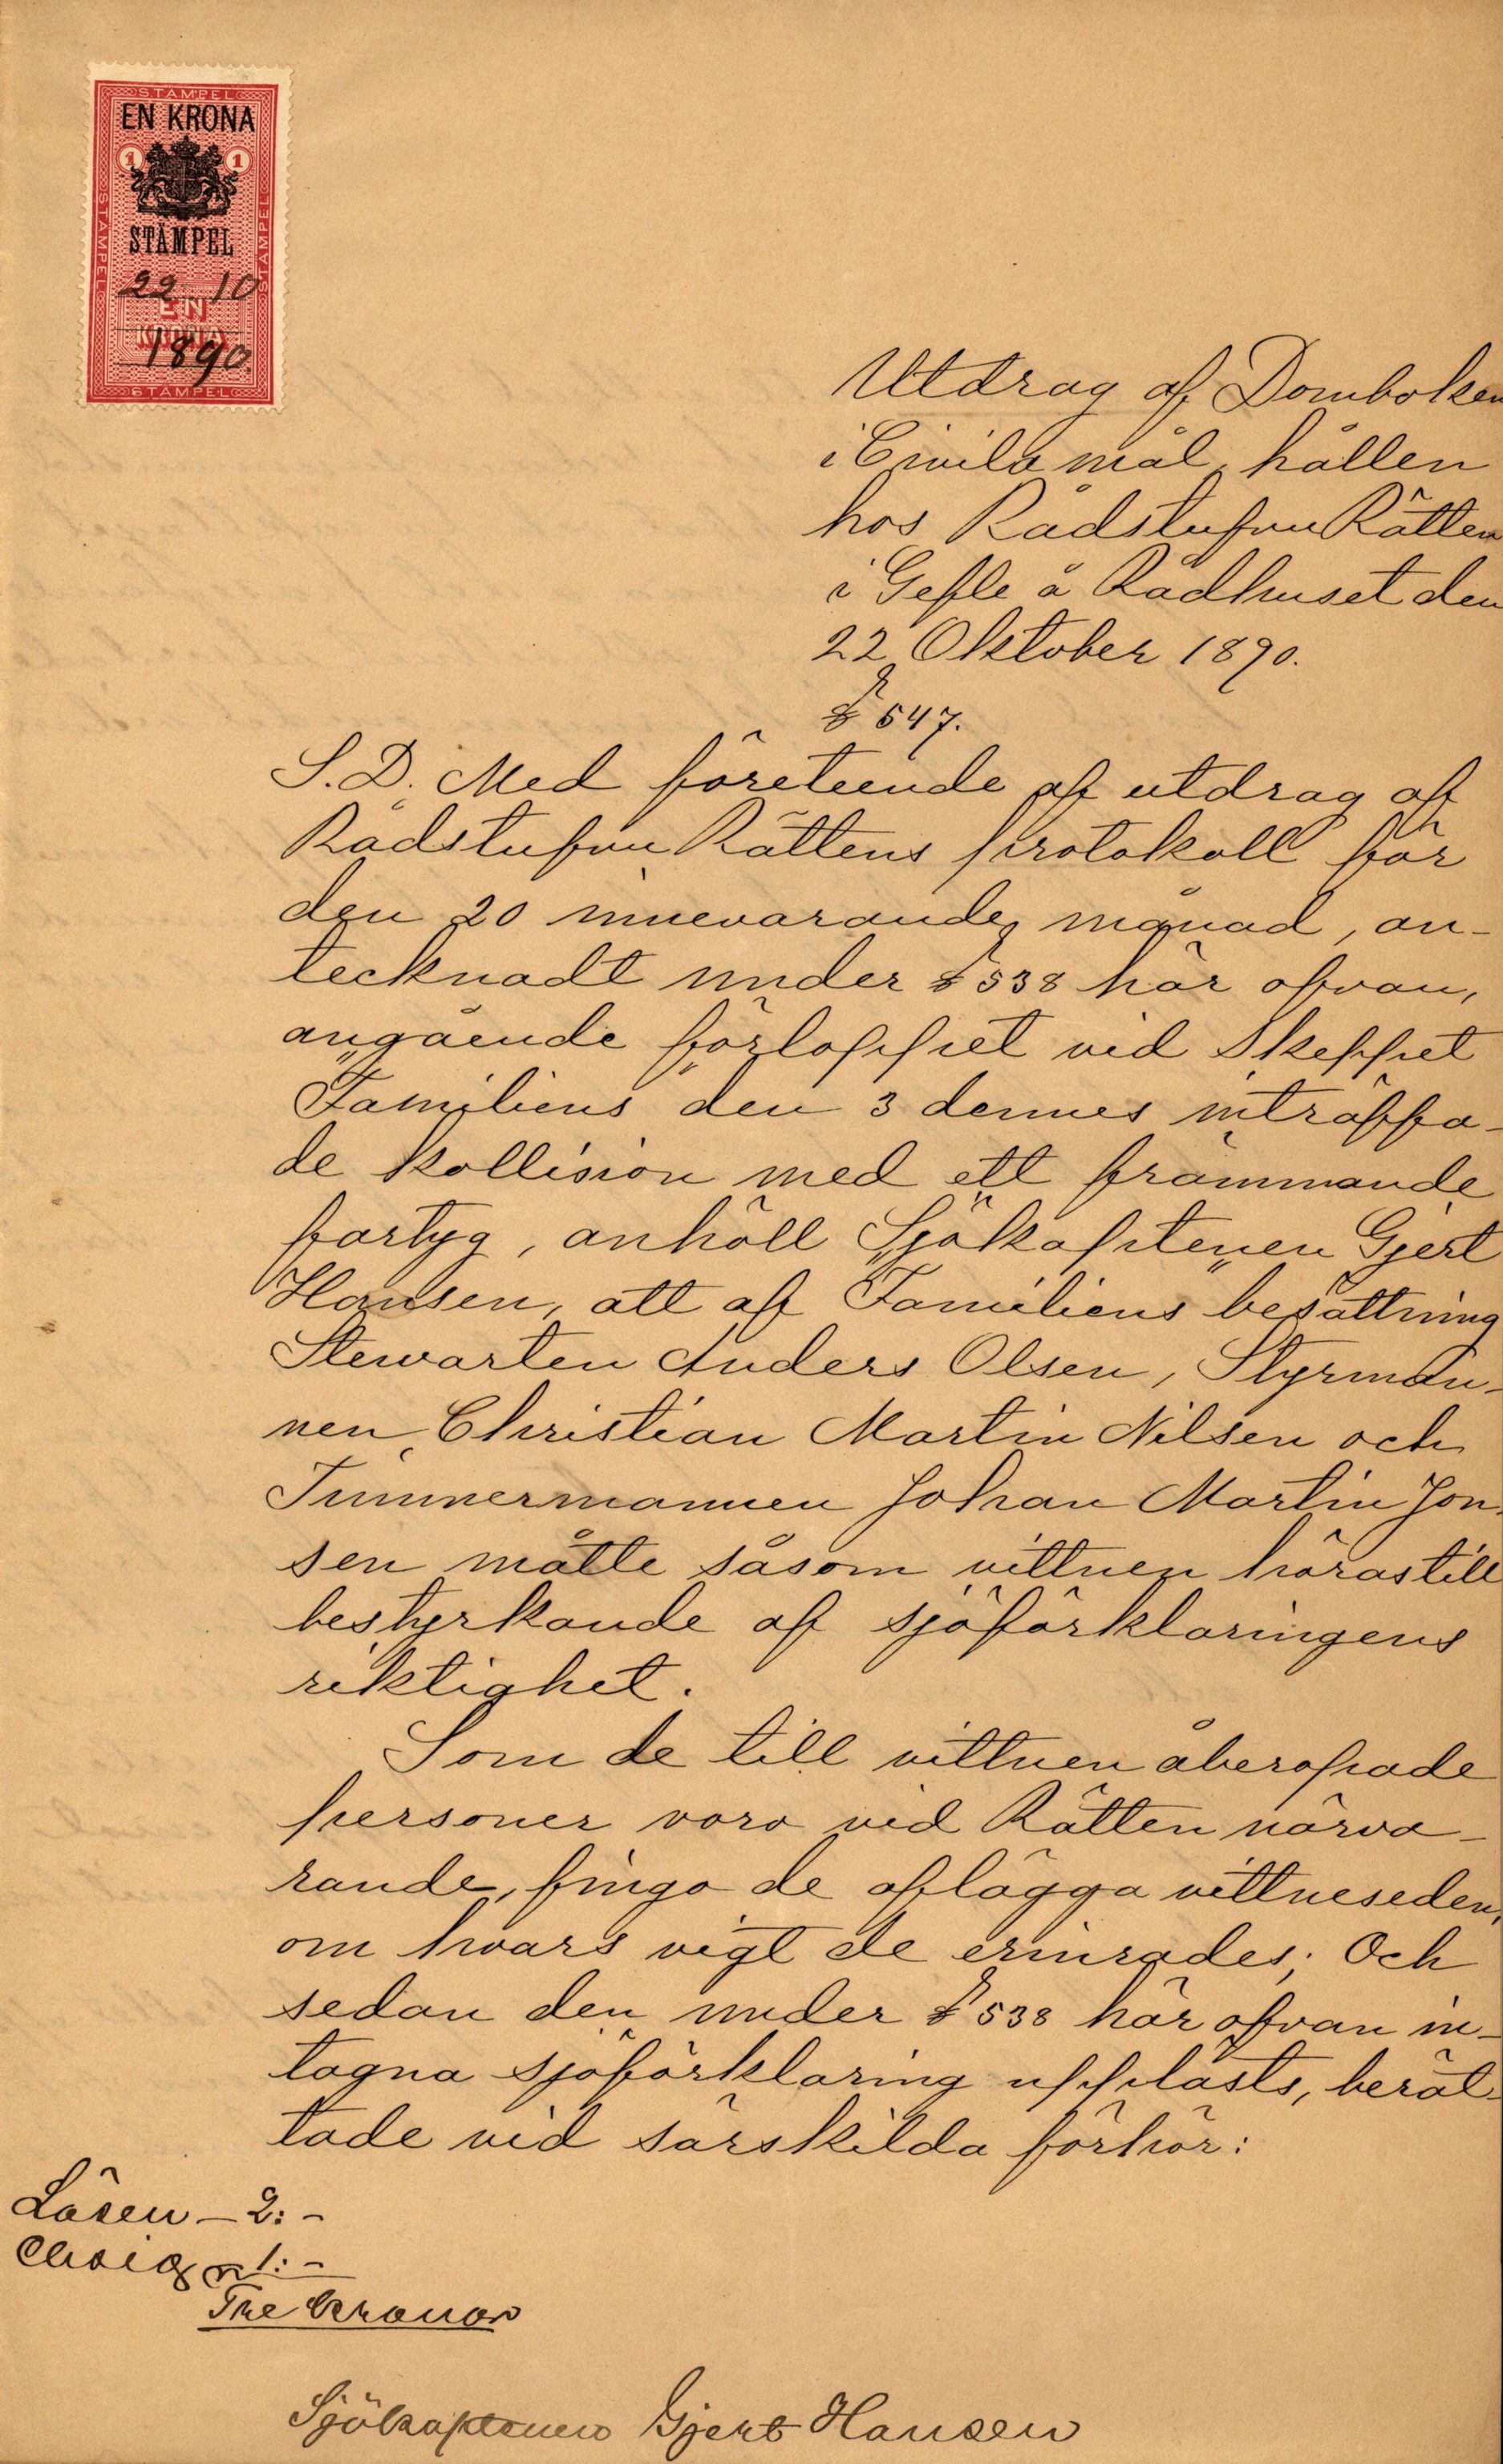 STÄMPEL
EN KRONA
1 1
STÄMPEL
STÄMPEL
STÄMPEL
22 10
EN
KRONA
1890.
STÄMPEL
Utdrag af Domboken
i Civila mål, hållen
hos Rådstufvu Rätten
i Gefle å Rådhuset den
22 Oktober 1890.
§ 547.
S. D. Med företeende af utdrag af
Rådstufvu Rättens protokoll för
den 20 innevarande månad, an-
tecknadt under § 538 här ofvan,
angående förloppet vid Skeppet
"Familiens" den 3 dennes inträffa-
de kollision med ett främmande
fartyg, anhöll Sjökaptenen Gjert
Hansen, att af "Familiens" besättning
Stewarten Anders Olsen, Styrman-
nen Christian Martin Nilsen och
Timmermannen Johan Martin Jon-
sen måtte såsom vittnen höras till
bestyrkande af sjöförklaringens
riktighet.
Som de till vittnen åberopade
personer voro vid Rätten närva-
rande, fingo de aflägga vittneseden,
om hvars vigt de erinrades; Och
sedan den under § 538 här ofvan in-
tagna sjöförklaring upplästs, berät-
tade vid särskilda förhör:
Lösen - 2: -
1: -
Tre Kronor
Sjökaptenen Gjert Hansen